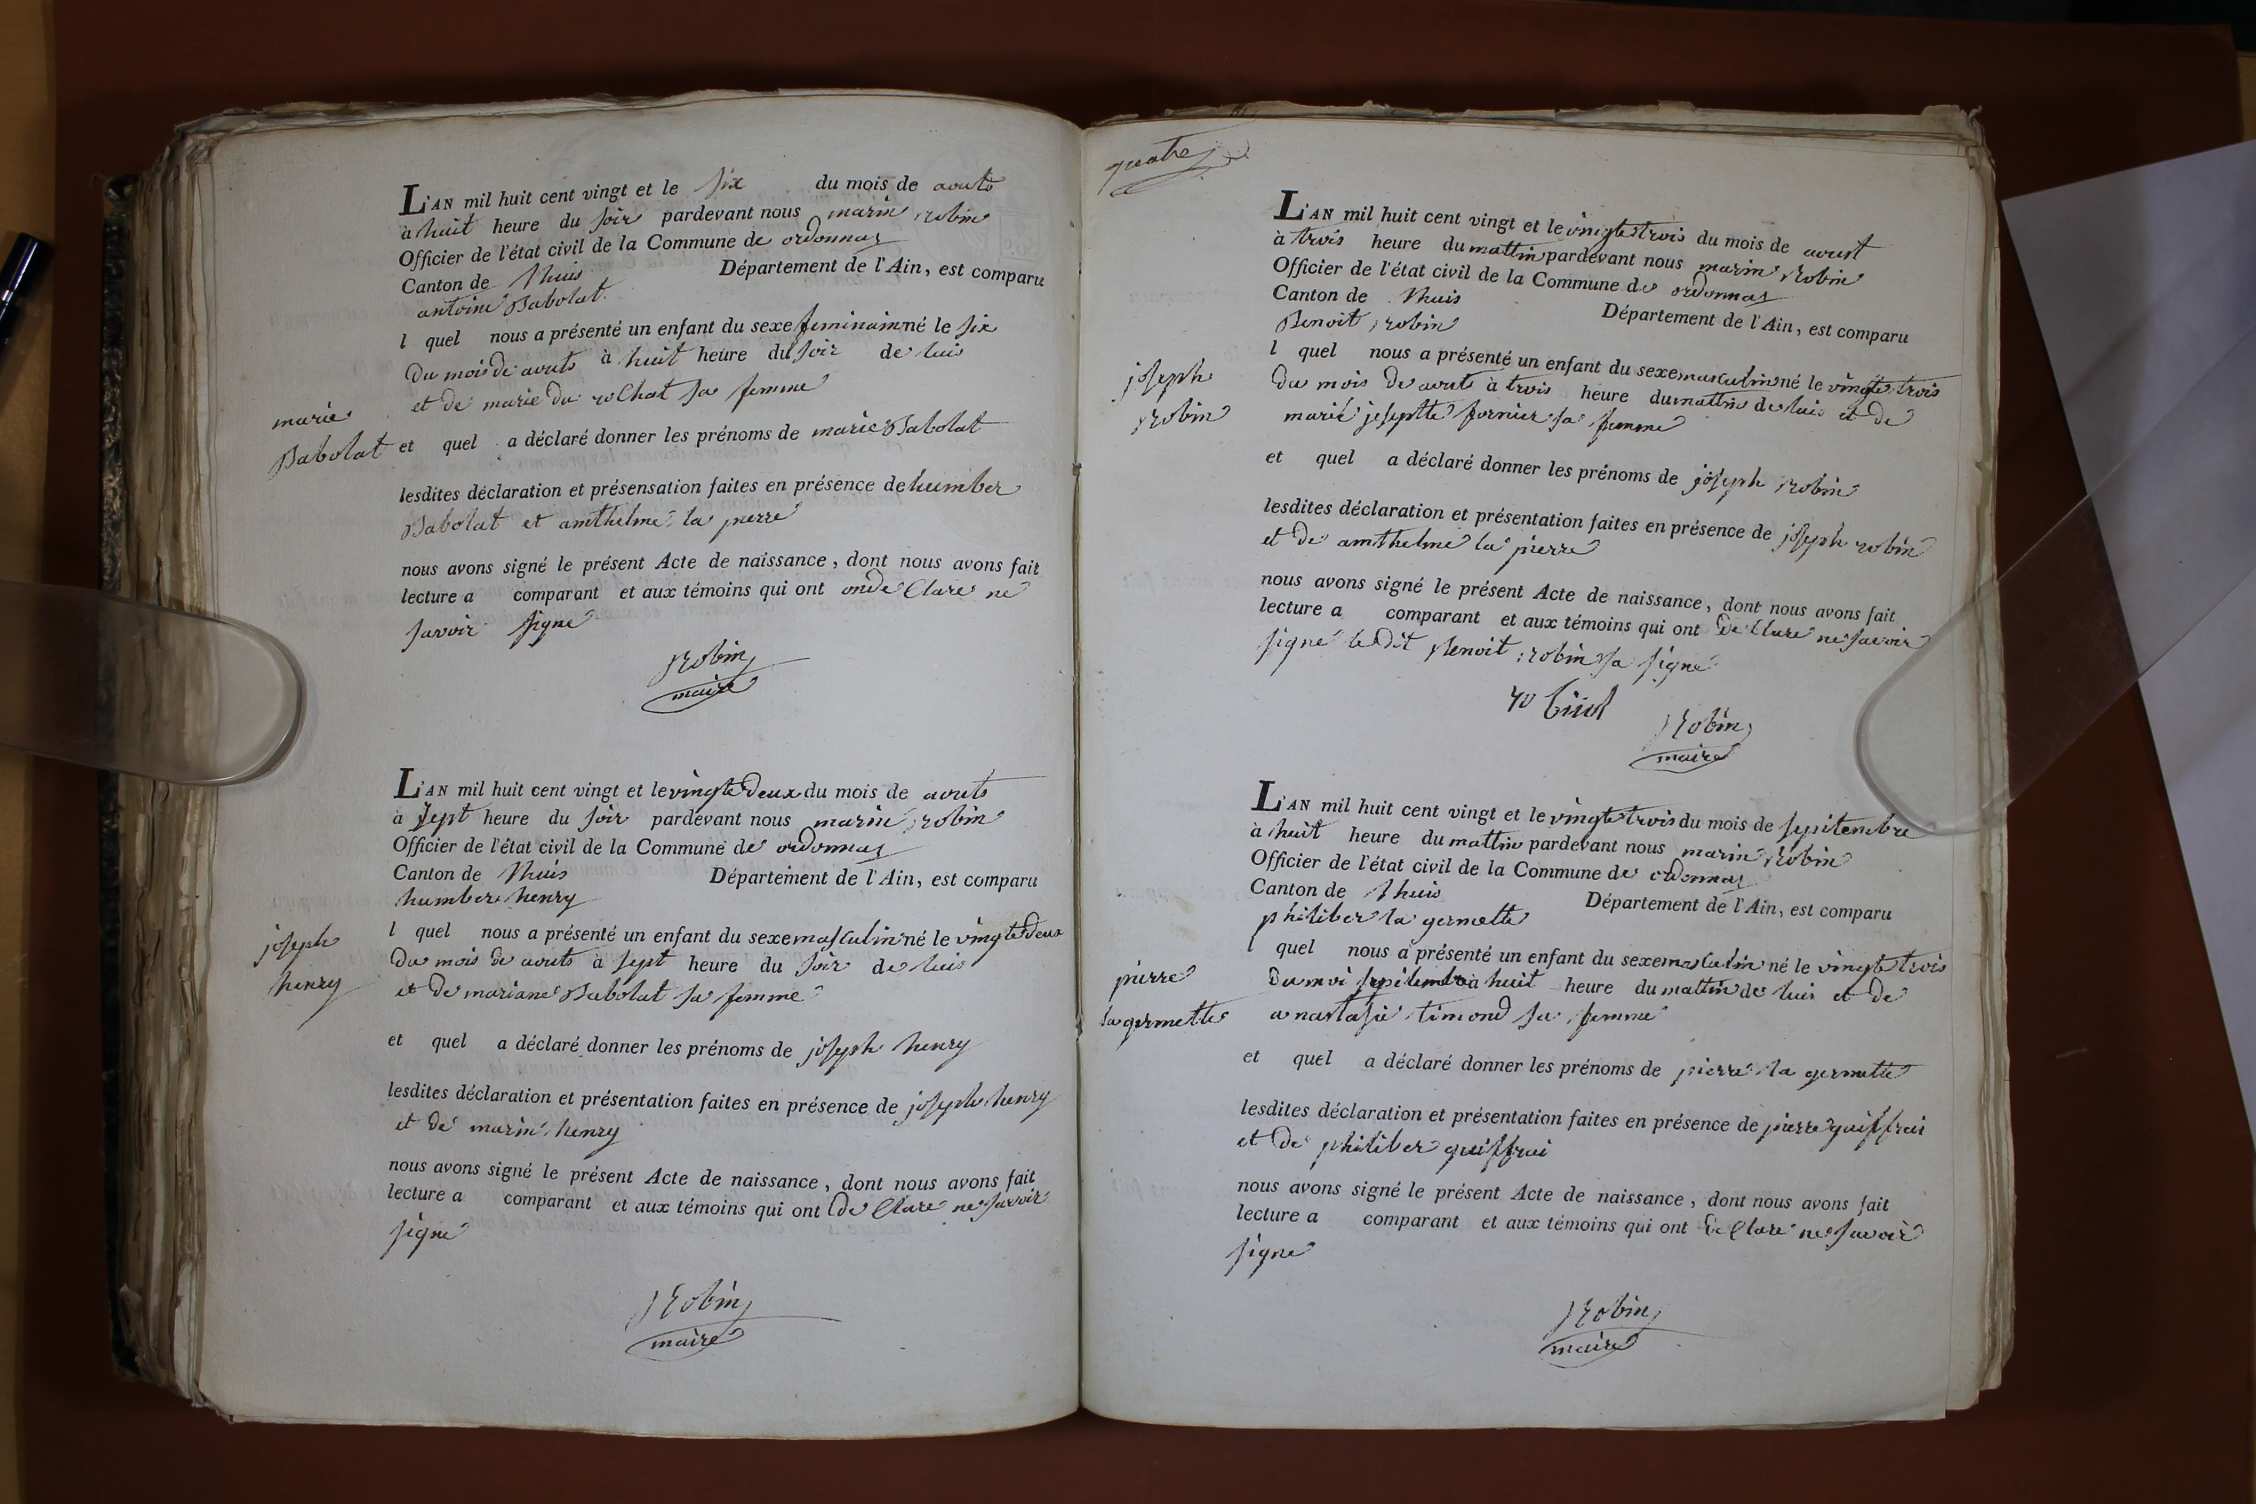 marie
Babolat
L'AN mil huit cent vingt et le six du mois de aouts
à huit heure du soir pardevant nous marin robin
Officier de l'état civil de la Commune de ordonnas
Canton de lhuis Département de l'Ain, est comparu
antoine Babolat
l quel nous a présenté un enfant du sexe feminain né le six
du mois de aouts à huit heure du soir de luis
et de marie du roChat sa femme
et quel a déclaré donner les prénoms de marie Babolat
lesdites déclaration et présensation faites en présence de humber
Babolat et amthelme la pierre
nous avons signé le présent Acte de naissance, dont nous avons fait
lecture a comparant et aux témoins qui ont onde Clare ne
savoir signe
Robin
maire
joseph
henry
L'AN mil huit cent vingt et le vingte deux du mois de aouts
à sept heure du soir pardevant nous marin robin
Officier de l'état civil de la Commune de ordonnas
Canton de lhuis Département de l'Ain, est comparu
humber henry
l quel nous a présenté un enfant du sexe masculin né le vingte deux
du mois de aouts à sept heure du soir de luis
et de mariane Babolat sa femme
et quel a déclaré donner les prénoms de joseph henry
lesdites déclaration et présentation faites en présence de joseph henry
et de marin henry
nous avons signé le présent Acte de naissance, dont nous avons fait
lecture a comparant et aux témoins qui ont de Clare ne savoir
signe
Robin
maire
quatre
joseph
robin
L'AN mil huit cent vingt et le vingte trois du mois de aoust
à trois heure du mattin pardevant nous marin Robin
Officier de l'état civil de la Commune de ordonnas
Canton de lhuis Département de l'Ain, est comparu
Benoit robin
l quel nous a présenté un enfant du sexe masculin né le vingte trois
du mois de aouts à trois heure du mattin de luis et de
marie josephte fornier sa femme
et quel a déclaré donner les prénoms de joseph robin
lesdites déclaration et présentation faites en présence de joseph robin
et de amthelme la pierre
nous avons signé le présent Acte de naissance, dont nous avons fait
lecture a comparant et aux témoins qui ont de Clare ne savoir
signe le dit Benoit robin sa signe
Robin
maire
pierre
la germette
L'AN mil huit cent vingt et le vingte trois du mois de sepitembre
à huit heure du mattin pardevant nous marin Robin
Officier de l'état civil de la Commune de ordonnas
Canton de lhuis Département de l'Ain, est comparu
philiber la germette
l quel nous a présenté un enfant du sexe masculin né le vingte trois
du moi sepitembre à huit heure du mattin de luis et de
anastasie timond sa femme
et quel a déclaré donner les prénoms de pierre la germette
lesdites déclaration et présentation faites en présence de pierre guiffrai
et de philiber guiffrai
nous avons signé le présent Acte de naissance, dont nous avons fait
lecture a comparant et aux témoins qui ont de Clare ne savoir
signe
Robin
maire